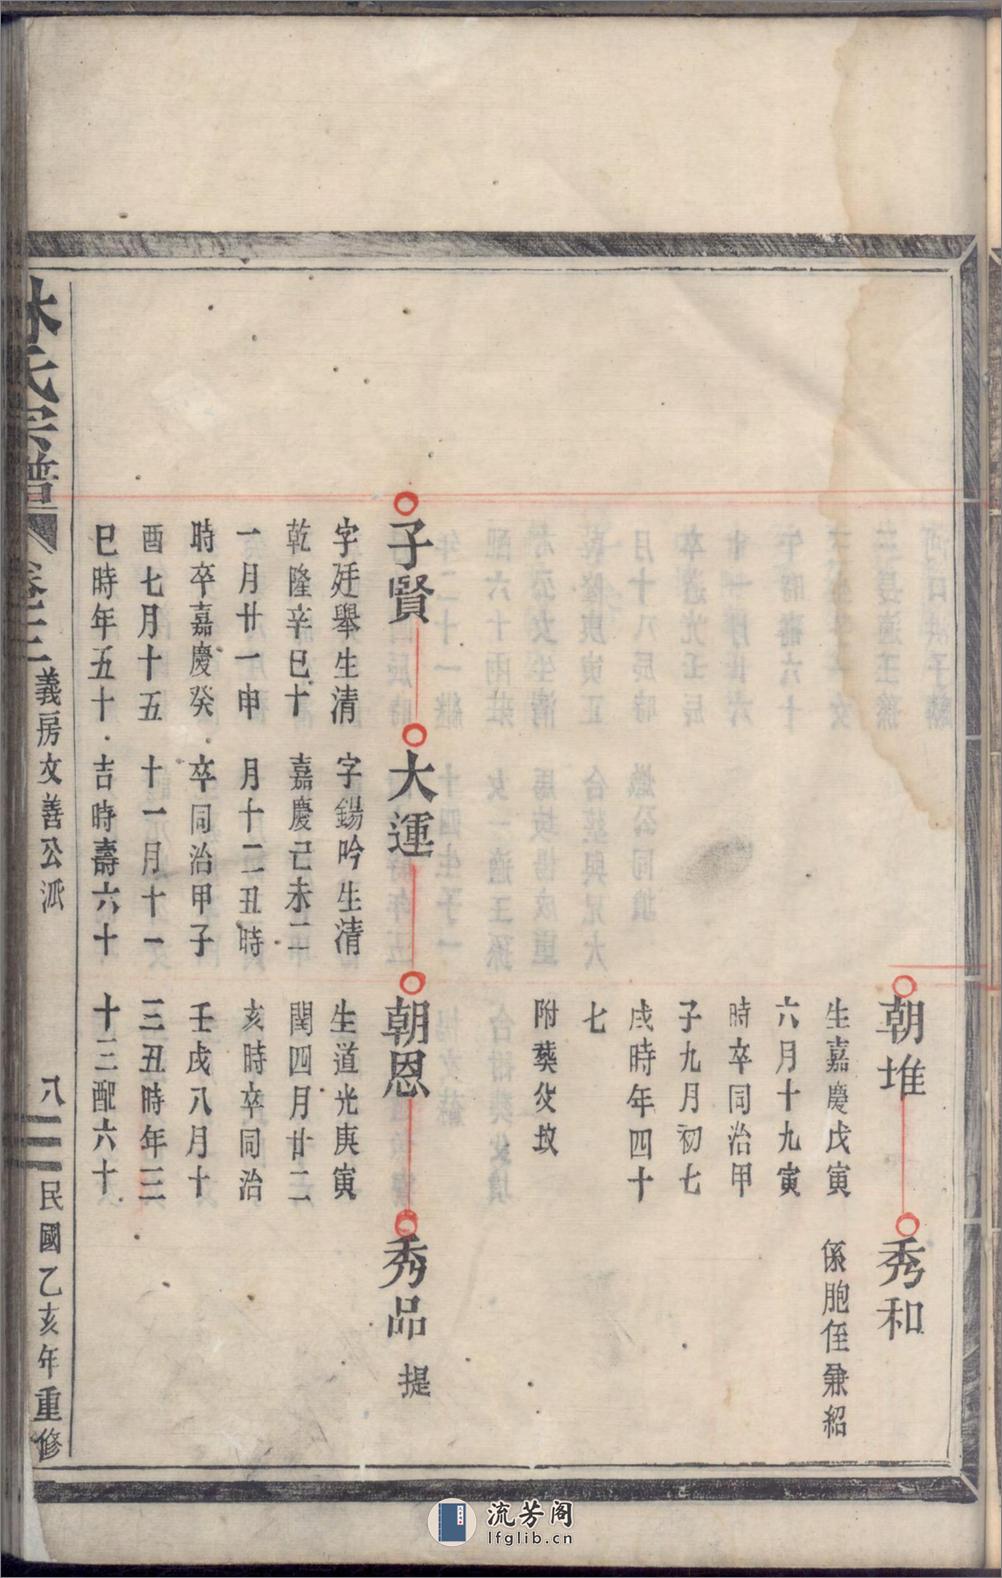 朝堆
生嘉慶戊寅
六月十九寅
時卒同治甲
子九月初七
戌時年四十
七
附葬父坟
秀和
係胞侄兼紹
子賢
字廷舉生清
乾隆辛巳十
一月廿一申
時卒嘉慶癸
酉七月十五
巳時年五十
大運
字錫吟生清
嘉慶己未二
月十二丑時
卒同治甲子
十一月十一
吉時壽六十
朝恩
生道光庚寅
閏四月廿二
亥時卒同治
壬戌八月十
三丑時年三
十三配六十
秀品 提
林氏宗譜 卷三 義房文善公派 八 民國乙亥年重修
流芳阁
lfglib.cn